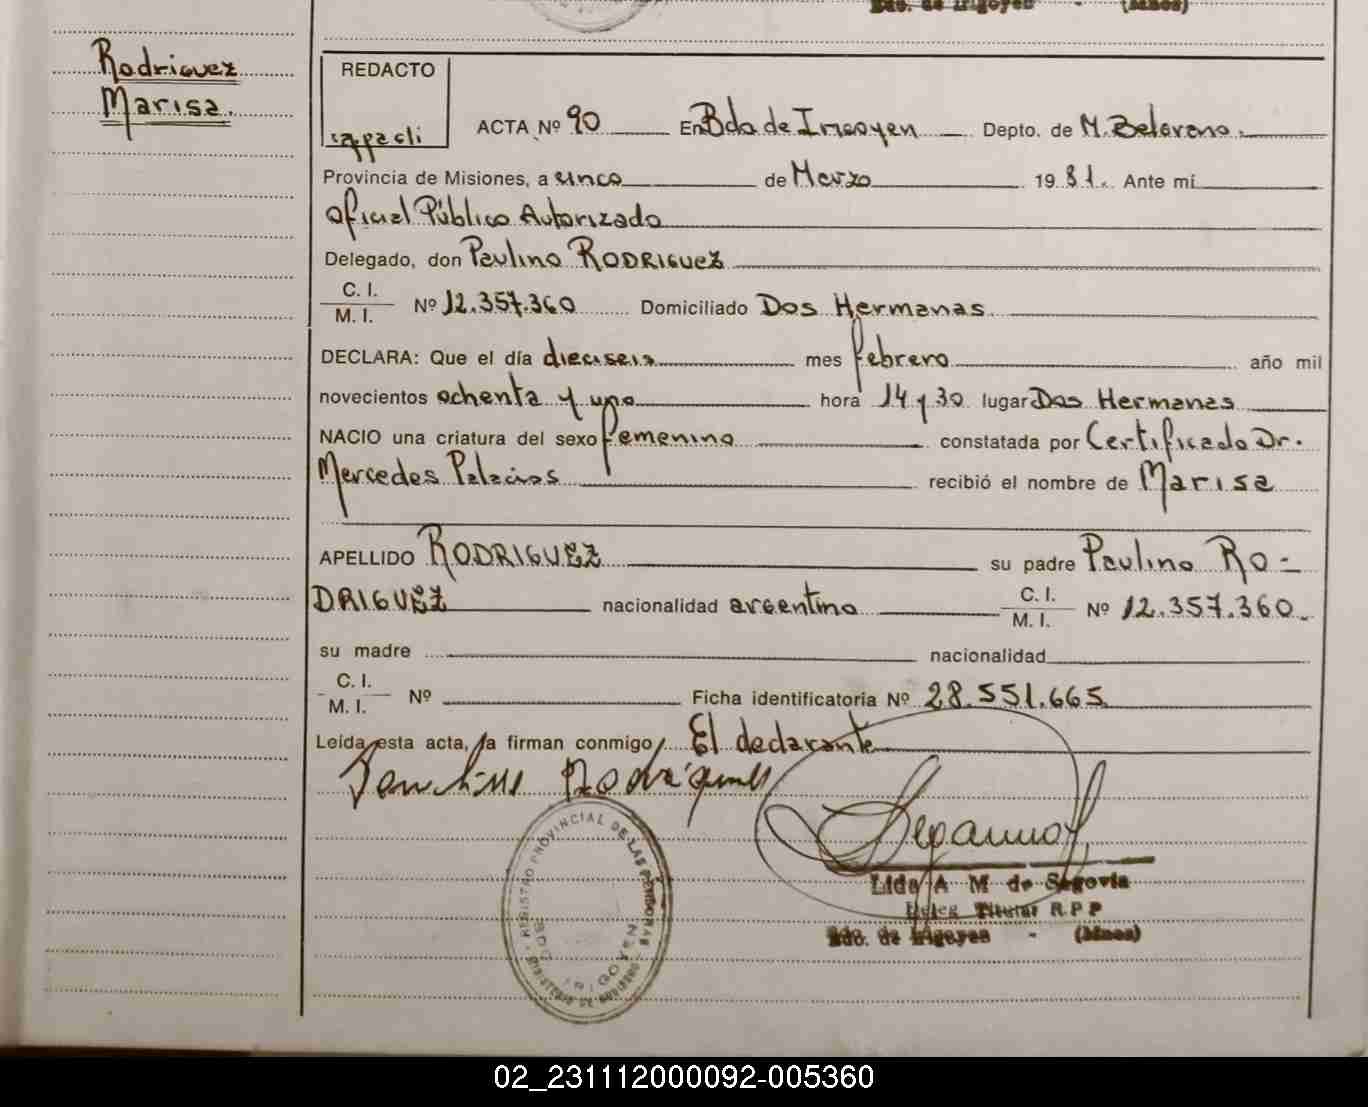 Bdo. de Irigoyen - (Mnes)
Rodriguez
Marisa.
REDACTO
ACTA Nº 90 En Bdo de Irigoyen Depto. de M. Belgrano.
Provincia de Misiones, a cinco de Marzo 1981. Ante mí
Oficial Público Autorizado
Delegado, don Paulino RODRIGUEZ
C. I.
M. I. Nº 12.357.360 Domiciliado Dos Hermanas
DECLARA: Que el día dieciseis mes febrero año mil
novecientos ochenta y uno hora 14 y 30 lugar Dos Hermanas
NACIO una criatura del sexo femenino constatada por Certificado Dr.
Mercedes Palacios recibió el nombre de Marisa
APELLIDO RODRIGUEZ su padre Paulino RO-
DRIGUEZ nacionalidad argentino C. I.
M. I. Nº 12.357.360
su madre nacionalidad
C. I.
M. I. Nº Ficha identificatoria Nº 28.551.665
Leída esta acta, la firman conmigo El declarante
REGISTRO PROVINCIAL DE LAS PERSONAS
MINISTERIO DE GOBIERNO
BDO. IRIGOYEN
Lida A M de Segovia
Deleg Titular R.P.P
Bdo. de Irigoyen - (Mnes)
02_231112000092-005360